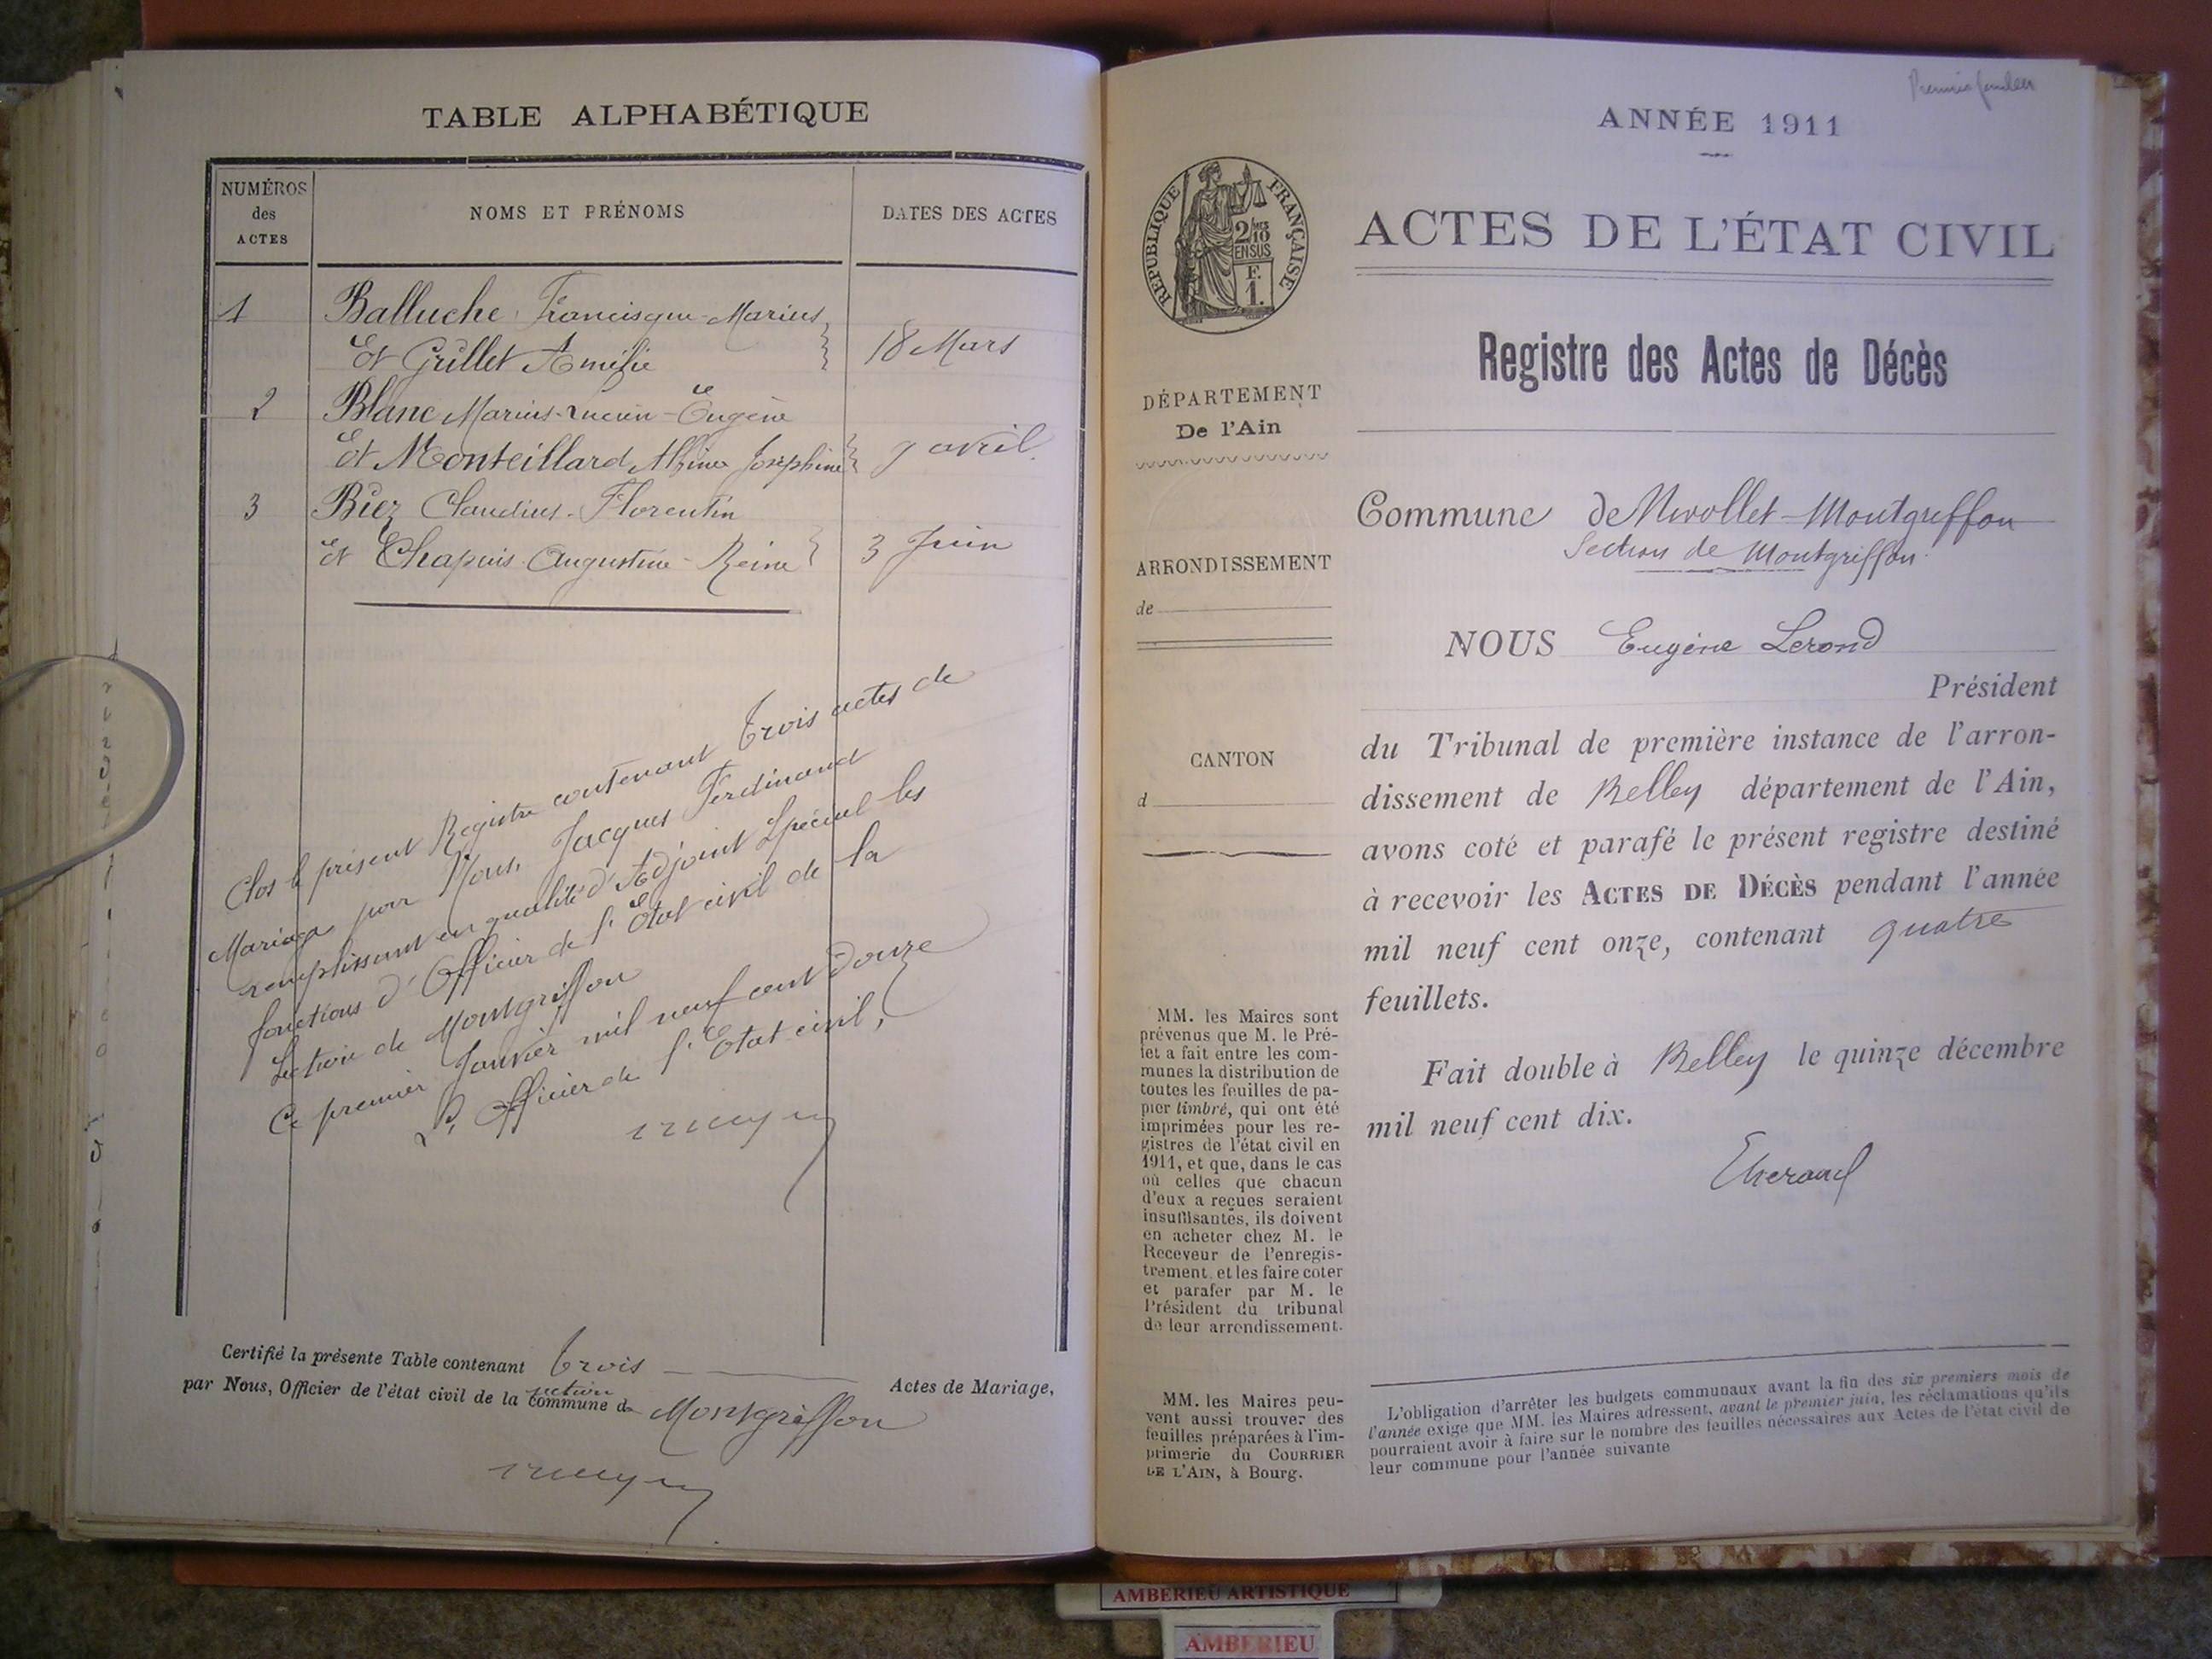 TABLE ALPHABÉTIQUE
NUMÉROS
des
ACTES
NOMS ET PRÉNOMS
DATES DES ACTES
1 Balluche Francisque-Marius
Et Grillet Amélie 18 Mars
2 Blanc Marius-Lucien-Eugène
Et Monteillard Joséphine 9 avril
3 Biez Claudius-Florentin
et Chapuis Augustine-Reine 3 Juin
Clos le présent Registre contenant trois actes de
Mariage par Nous, Jacques Ferdinand
remplissant en qualité d'Adjoint Spécial les
fonctions d'Officier de l'État civil de la
Section de Montgriffon
Ce premier Janvier mil neuf cent douze
L'Officier de l'Etat civil,
Certifié la présente Table contenant trois Actes de Mariage,
par Nous, Officier de l'état civil de la commune section de Montgriffon
Premier feuillet
ANNÉE 1911
RÉPUBLIQUE FRANÇAISE
2/10
EN SUS
F.
1.
ACTES DE L'ÉTAT CIVIL
Registre des Actes de Décès
DÉPARTEMENT
De l'Ain
ARRONDISSEMENT
de
CANTON
d
MM. les Maires sont
prévenus que M. le Pré-
fet a fait entre les com-
munes la distribution de
toutes les feuilles de pa-
pier timbré, qui ont été
imprimées pour les re-
gistres de l'état civil en
1911, et que, dans le cas
où celles que chacun
d'eux a reçues seraient
insuffisantes, ils doivent
en acheter chez M. le
Receveur de l'enregis-
trement et les faire coter
et parafer par M. le
Président du tribunal
de leur arrondissement.
MM. les Maires peu-
vent aussi trouver des
feuilles préparées à l'im-
primerie du COURRIER
DE L'AIN, à Bourg.
Commune de Nivollet-Montgriffon
Section de Montgriffon
NOUS Eugène Lerond
Président
du Tribunal de première instance de l'arron-
dissement de Belley département de l'Ain,
avons coté et parafé le présent registre destiné
à recevoir les ACTES DE DÉCÈS pendant l'année
mil neuf cent onze, contenant quatre
feuillets.
Fait double à Belley le quinze décembre
mil neuf cent dix.
L'obligation d'arrêter les budgets communaux avant la fin des six premiers mois de
l'année exige que MM. les Maires adressent, avant le premier juin, les réclamations qu'ils
pourraient avoir à faire sur le nombre des feuilles nécessaires aux Actes de l'état civil de
leur commune pour l'année suivante
AMBERIEU ARTISTIQUE
AMBERIEU